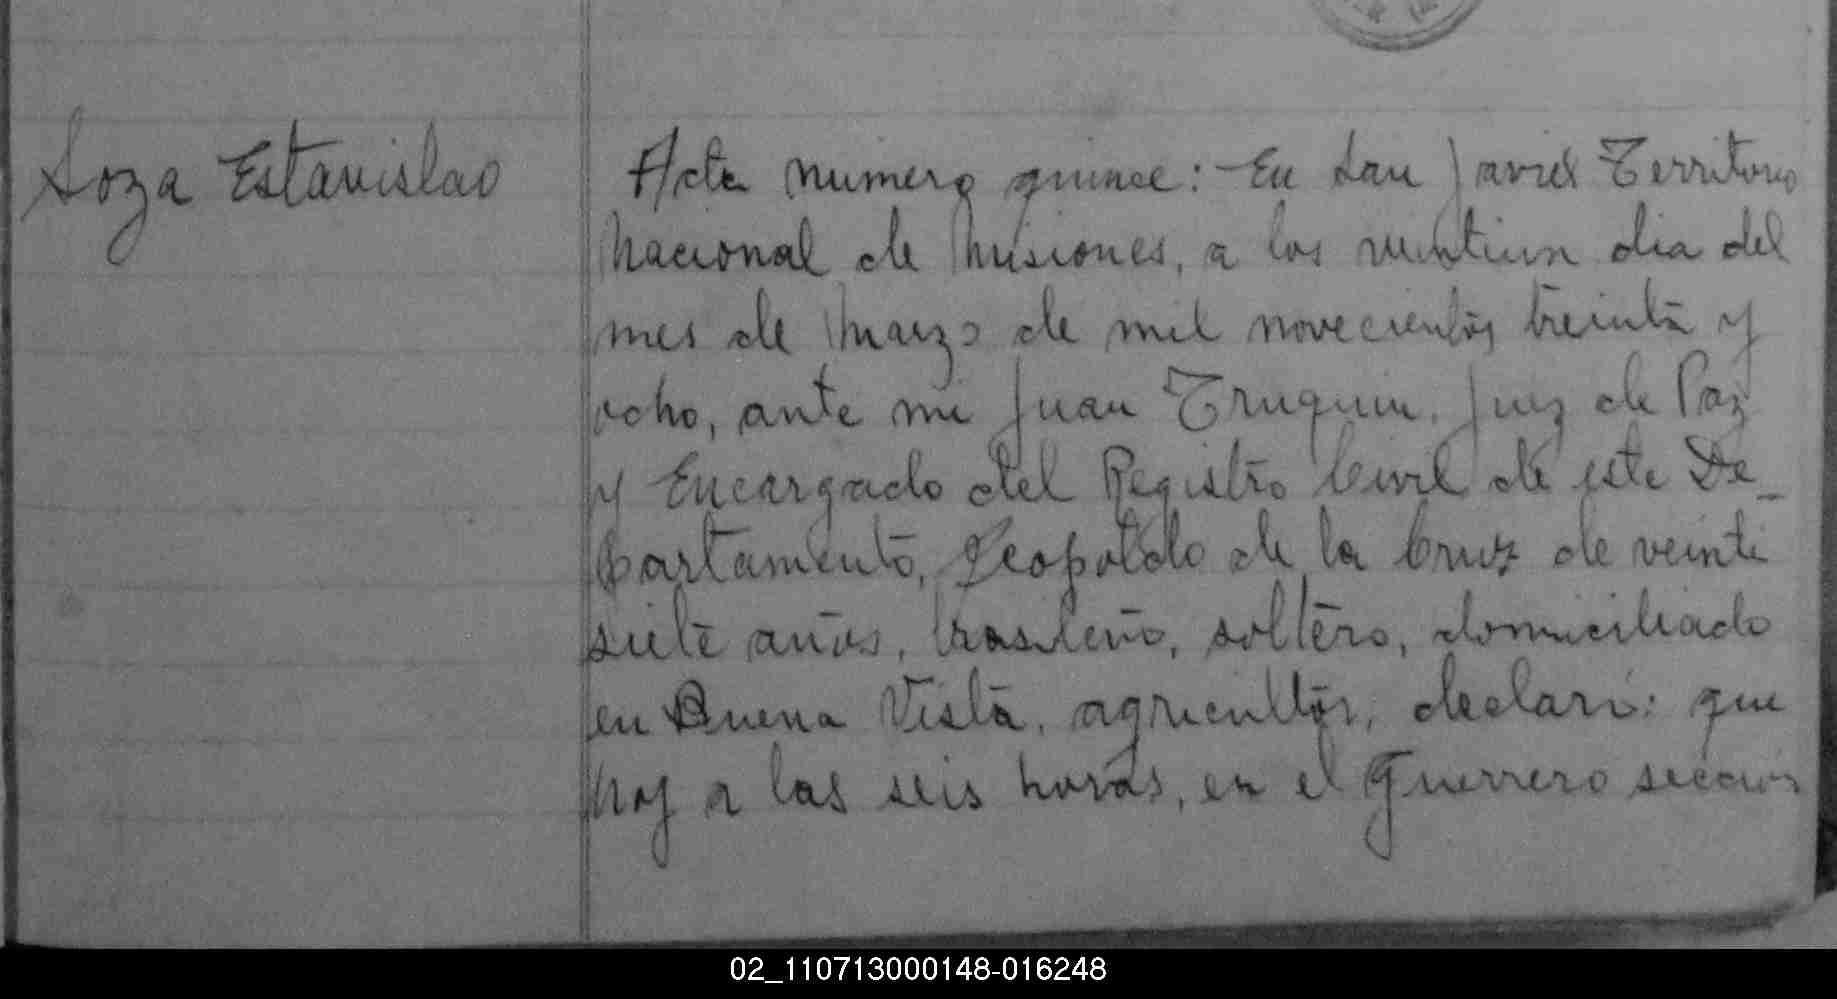 Soza Estanislao
Acta numero quince: En San Javier Territorio
Nacional de Misiones, a los veintiun dia del
mes de Marzo de mil novecientos treinta y
ocho, ante mi Juan Truquin, Juez de Paz
y Encargado del Registro Civil de este De_
partamento, Leopoldo de la Cruz de veinte
siete años, brasileño, soltero, domiciliado
en Buena Vista, agricultor, declaró: que
hoy a las seis horas, en el Guerrero sección
02_110713000148-016248